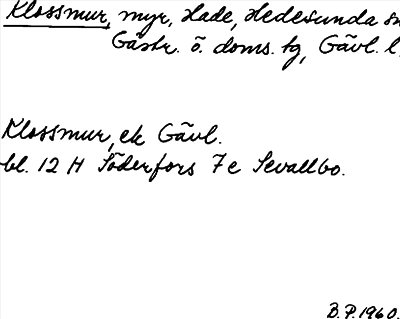 Klossmur, myr, Hade, Hedesunda sn
Gästr. ö. doms. tg, Gävl. l.
Klossmur, ek Gävl.
bl. 12 H Söderfors 7 e Sevallbo.
B.P. 1960.